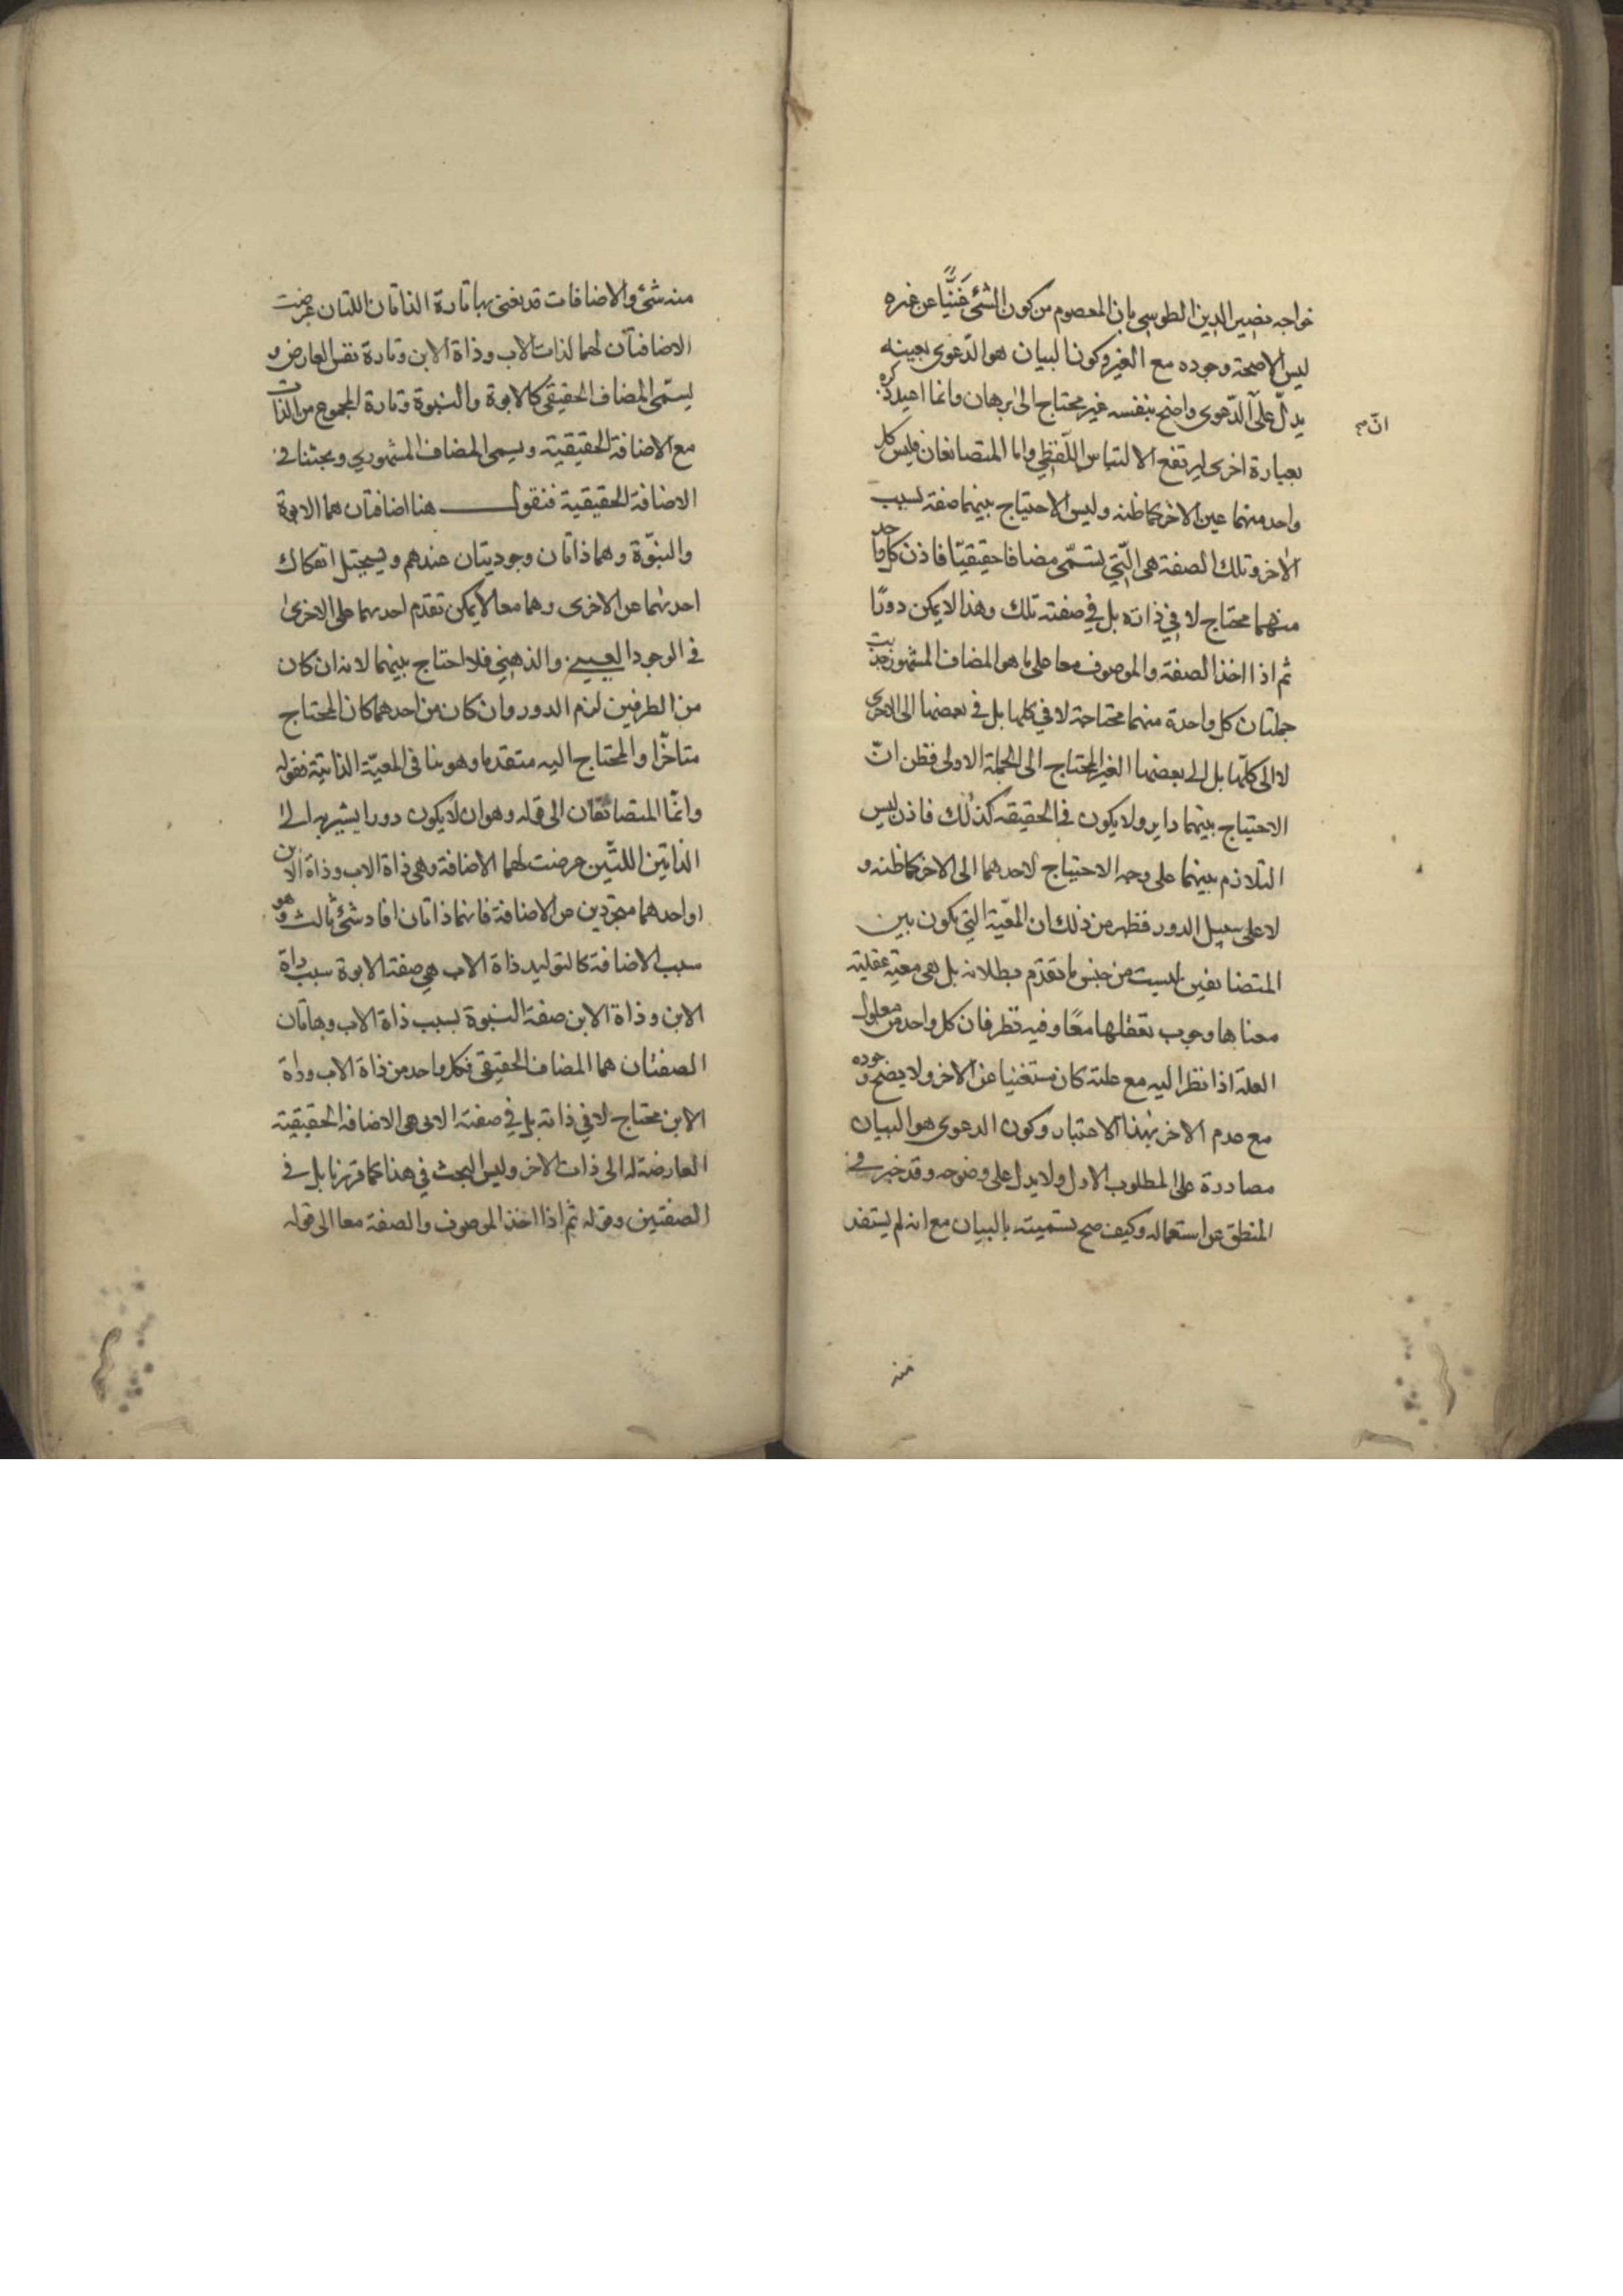 خواجه نصير الدين الطوسي بان المعصوم من كون الشئ غنيًّا عن غيره
ليس الا صحة وجوده مع الغير وكون البيان هو الدعوى بعينه
يدلّ على الدّعوى واضح بنفسه غير محتاج الى برهان وانما اعيد ذكره
انّ
بعبارة اخرى ليرتفع الالتباس اللّفظي واما المتضايفان فليس كل
واحد منهما عين الاخر كما ظنه وليس الاحتياج بينهما صفة بسبب
الاخر وتلك الصفة هي الّتي يسمّى مضافا حقيقيّا فاذن كل واحد
منهما محتاج لا في ذاته بل في صفته تلك وهذا لا يكون دورًا
ثم اذا اخذ الصفة والموصوف معا على ما هو المضاف المشهور حدثت
جملتان كل واحدة منهما محتاجة لا في كلها بل في بعضها الى الاخرى
لا الى كلّها بل الى بعضها الغير المحتاج الى الجملة الاولى فظن انّ
الاحتياج بينهما داير ولا يكون في الحقيقة كذلك فاذن ليس
التلازم بينهما على وجه الاحتياج لاحدهما الى الاخر كما ظنه و
لا على سبيل الدور فظهر من ذلك ان المعيّة التي يكون بين
المتضايفين ليست من جنس ما تقدّم بطلانه بل هي معيّة عقلية
معناها وجوب تعقلها معًا وفيه نظر فان كل واحد من معلول
العلة اذا نظر اليه مع علته كان مستغنيا عن الاخر ولا يصح وجوده
مع عدم الاخر بهذا الاعتبار وكون الدعوى هو البيان
مصادرة على المطلوب الاول ولا يدل على وضوحه وقد خبر في
المنطق عن استعماله وكيف صح تسميته بالبيان مع انه لم يستفد
منه
منه شئ والاضافات قد يعنى بها تارة الذاتان اللتان عرضت
الاضافتان لهما لذات الاب وذاة الابن وتارة نفس العارض و
يسمّى المضاف الحقيقي كالابوة والبنوة وتارة المجموع من الذات
مع الاضافة الحقيقية ويسمى المضاف المشهوري وبحثنا في
الاضافة الحقيقية فنقول هنا اضافتان هما الابوة
والبنوّة وهما ذاتان وجوديتان عندهم ويستحيل انفكاك
احدٮهما عن الاخرى وهما معا لا يمكن تقدم احدهما على الاخرى
في الوجود العيني والذهني فلا احتاج بينهما لانه ان كان
من الطرفين لزم الدور وان كان من احدهما كان المحتاج
متاخّرا والمحتاج اليه متقدما وهو ينافى المعيّة الذاتية فقوله
وانّما المتضائفان الى قوله وهو ان لا يكون دورا يشير به الى
الذاتين اللتين عرضت لهما الاضافة وهي ذاة الاب وذاة الابن
او احدهما مجردين من الاضافة فانهما ذاتان افاد شئ ثالث وهو
سبب الاضافة كالتوليد ذاة الاب هي صفة الابوة سبب ذاة
الابن وذاة الابن صفة البنوة بسبب ذاة الاب وهاتان
الصفتان هما المضاف الحقيقي فكل واحد من ذاة الاب وذاة
الابن محتاج لا في ذاته بل في صفته التى هى الاضافة الحقيقية
العارضة له الى ذات الاخر وليس البحث في هذا كما قررنا بل في
الصفتين وقوله ثم اذا اخذ الموصوف والصفة معا الى قوله